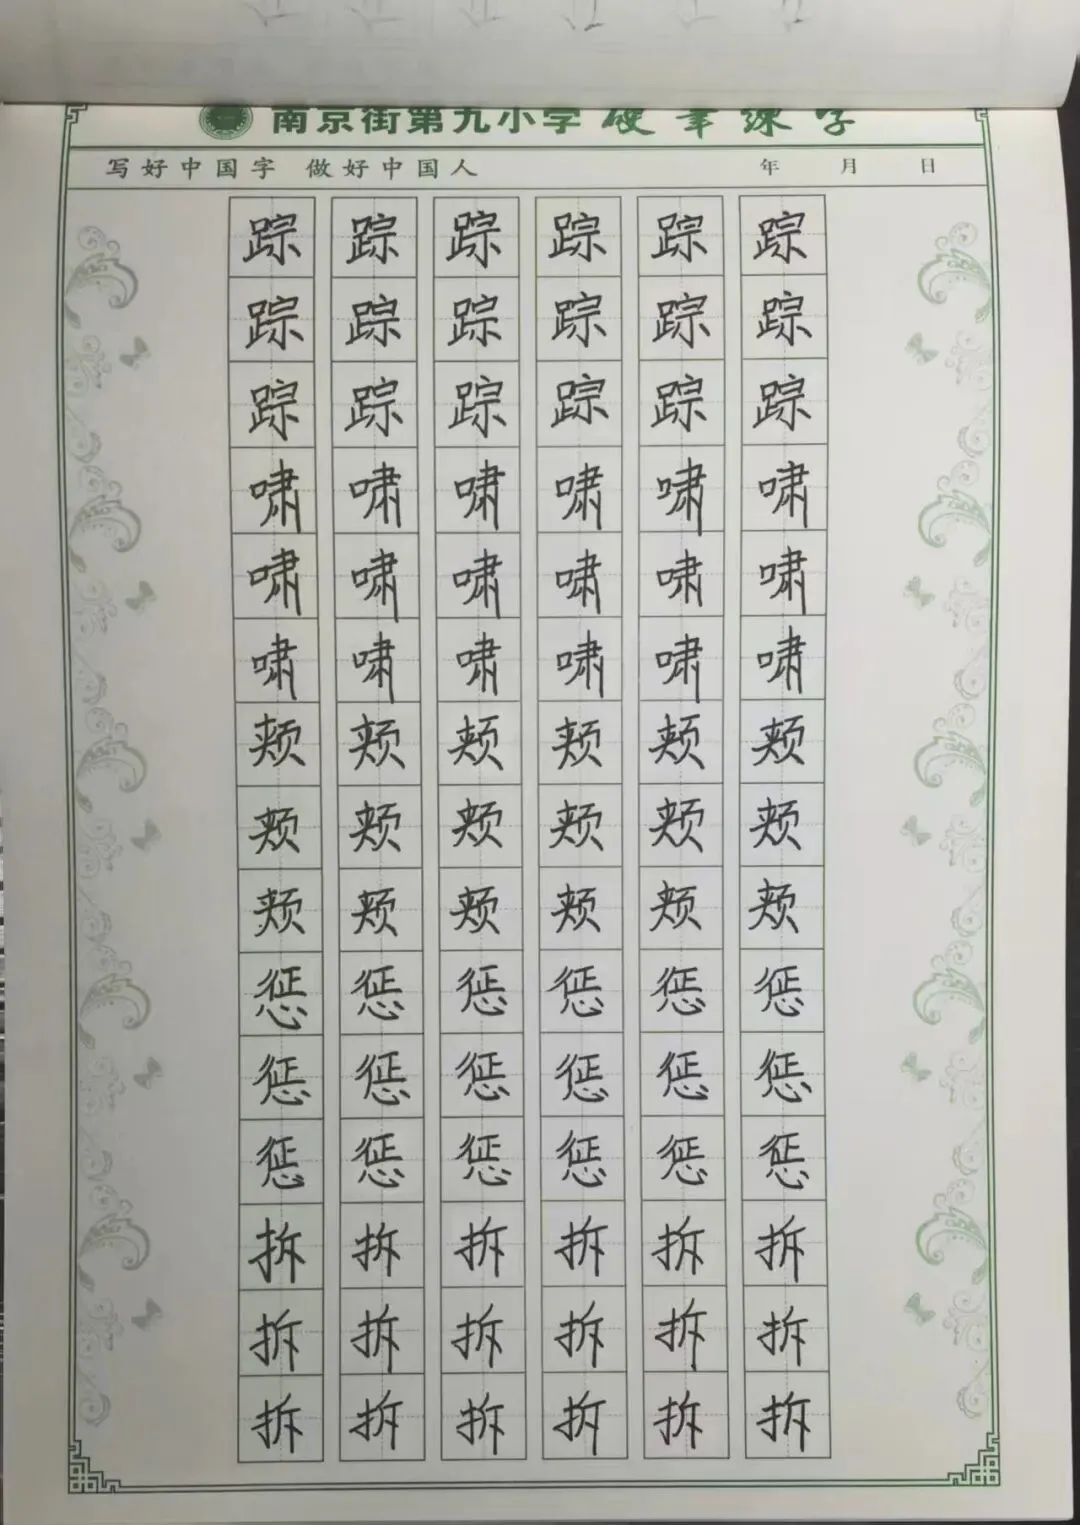 南京街第九小学硬笔练字
写好中国字 做好中国人 年 月 日
踪 踪 踪 踪 踪 踪
踪 踪 踪 踪 踪 踪
踪 踪 踪 踪 踪 踪
啸 啸 啸 啸 啸 啸
啸 啸 啸 啸 啸 啸
啸 啸 啸 啸 啸 啸
颊 颊 颊 颊 颊 颊
颊 颊 颊 颊 颊 颊
颊 颊 颊 颊 颊 颊
惩 惩 惩 惩 惩 惩
惩 惩 惩 惩 惩 惩
惩 惩 惩 惩 惩 惩
拆 拆 拆 拆 拆 拆
拆 拆 拆 拆 拆 拆
拆 拆 拆 拆 拆 拆